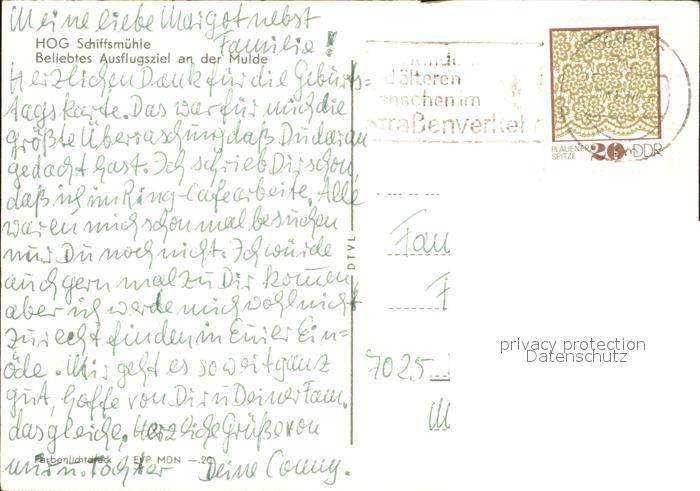 Meine liebe Margot nebst
Familie!
HOG Schiffsmühle
Beliebtes Ausflugsziel an der Mulde
Herzlichen Dank für die Geburts=
tagskarte. Das war für mich die
größte Überraschung daß Du daran
gedacht hast. Ich schrieb Dir schon,
daß ich im Ring-Café arbeite. Alle
waren mich schon mal besuchen
nur Du noch nicht. Ich würde
auch gern mal zu Dir kommen
aber ich werde mich wohl nicht
zurecht finden in Eurer Ein=
öde. Mir geht es soweit ganz
gut, hoffe von Dir u Deiner Fam.
das gleiche. Herzliche Grüße von
mir u. Tochter Deine Conny.
Farbenlichtdruck EVP MDN —.20
DTVL
älteren
enschen im
traßenverkeh
PLAUENER
SPITZE 20 DDR
Fam
7025
privacy protection
Datenschutz